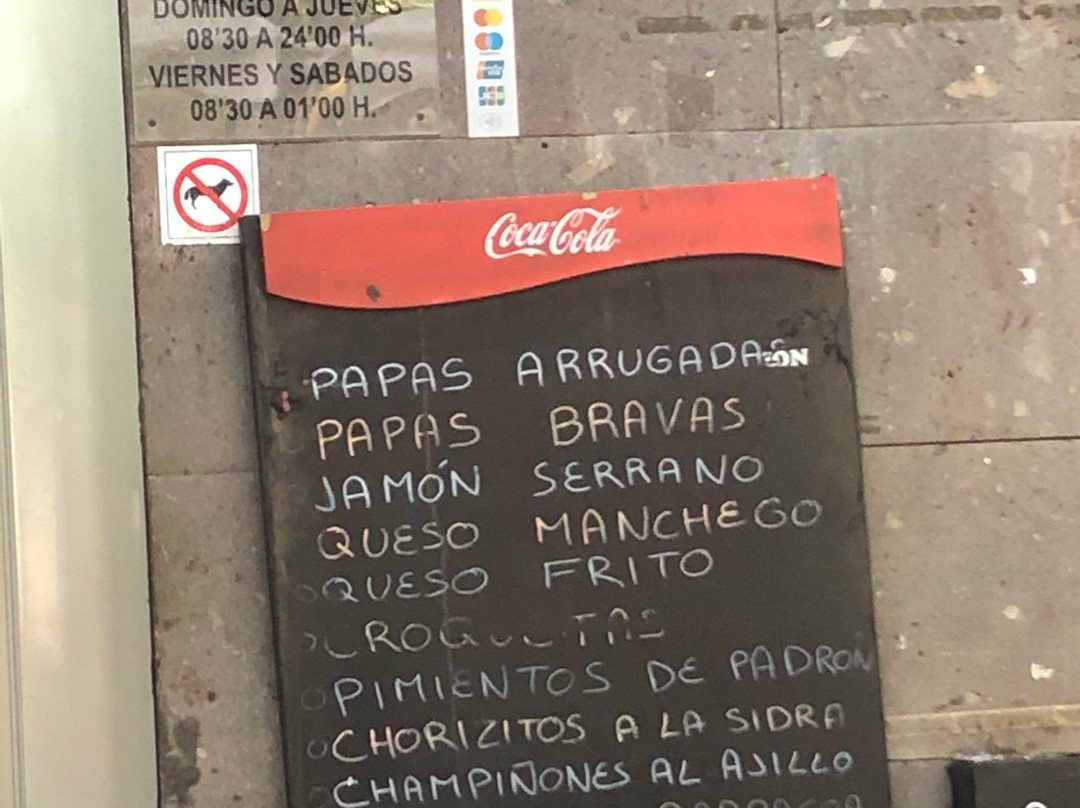 DOMINGO A JUEVES
08'30 A 24'00 H.
VIERNES Y SABADOS
08'30 A 01'00 H.
Coca-Cola
PAPAS ARRUGADAS
PAPAS BRAVAS
JAMÓN SERRANO
QUESO MANCHEGO
QUESO FRITO
CROQUETAS
PIMIENTOS DE PADRON
CHORIZITOS A LA SIDRA
CHAMPIÑONES AL AJILLO